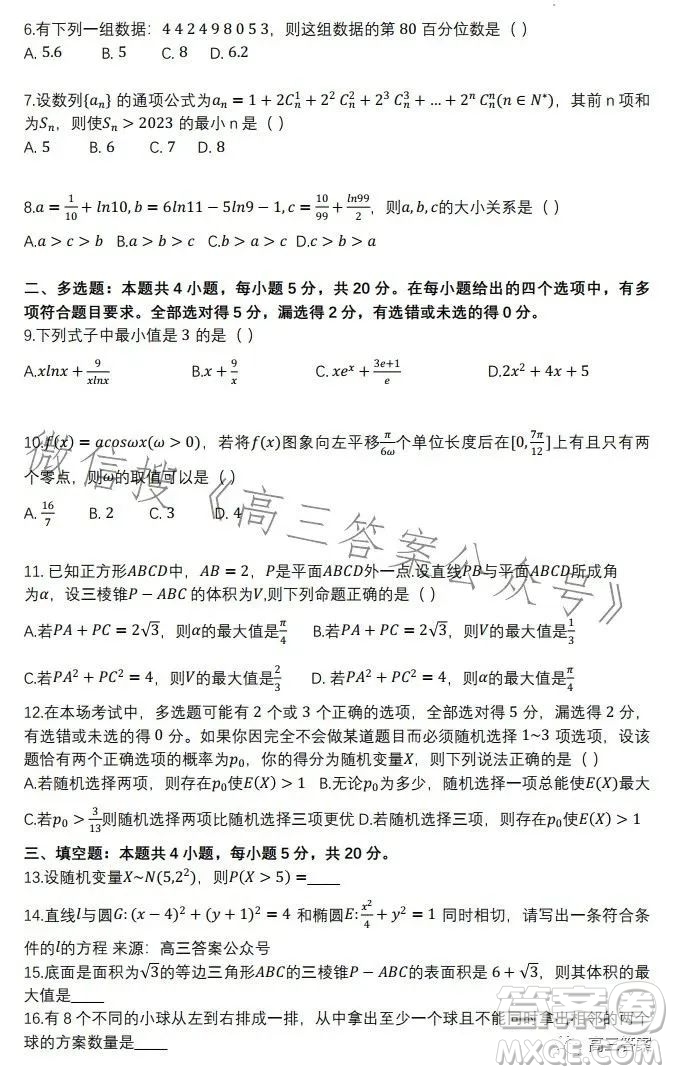 6.有下列一组数据：4 4 2 4 9 8 0 5 3，则这组数据的第 80 百分位数是（ ）
A. 5.6 B. 5 C. 8 D. 6.2
7.设数列{aₙ} 的通项公式为aₙ = 1 + 2Cₙ¹ + 2² Cₙ² + 2³ Cₙ³ + ... + 2ⁿ Cₙⁿ(n ∈ N*)，其前 n 项和
为Sₙ，则使Sₙ > 2023 的最小 n 是（ ）
A. 5 B. 6 C. 7 D. 8
8.a = 1/10 + ln10, b = 6ln11 − 5ln9 − 1, c = 10/99 + ln99/2，则a, b, c的大小关系是（ ）
A.a > c > b B.a > b > c C.b > a > c D.c > b > a
二、多选题：本题共 4 小题，每小题 5 分，共 20 分。在每小题给出的四个选项中，有多
项符合题目要求。全部选对得 5 分，漏选得 2 分，有选错或未选的得 0 分。
9.下列式子中最小值是 3 的是（ ）
A.xlnx + 9/xlnx B.x + 9/x C. xeˣ + 3e+1/e D.2x² + 4x + 5
10.f(x) = acosωx(ω > 0)，若将f(x)图象向左平移π/6ω个单位长度后在[0, 7π/12]上有且只有两
个零点，则ω的取值可以是（ ）
A. 16/7 B. 2 C. 3 D. 4
11. 已知正方形ABCD中，AB = 2，P是平面ABCD外一点.设直线PB与平面ABCD所成角
为α，设三棱锥P − ABC 的体积为V,则下列命题正确的是（ ）
A.若PA + PC = 2√3，则α的最大值是π/4 B.若PA + PC = 2√3，则V的最大值是1/3
C.若PA² + PC² = 4，则V的最大值是2/3 D. 若PA² + PC² = 4，则α的最大值是π/4
12.在本场考试中，多选题可能有 2 个或 3 个正确的选项，全部选对得 5 分，漏选得 2 分，
有选错或未选的得 0 分。如果你因完全不会做某道题目而必须随机选择 1~3 项选项，设该
题恰有两个正确选项的概率为p₀，你的得分为随机变量X，则下列说法正确的是（ ）
A.若随机选择两项，则存在p₀使E(X) > 1 B.无论p₀为多少，随机选择一项总能使E(X)最大
C.若p₀ > 3/13则随机选择两项比随机选择三项更优 D.若随机选择三项，则存在p₀使E(X) > 1
三、填空题：本题共 4 小题，每小题 5 分，共 20 分。
13.设随机变量X~N(5,2²)，则P(X > 5) =____
14.直线l与圆G: (x − 4)² + (y + 1)² = 4 和椭圆E: x²/4 + y² = 1 同时相切，请写出一条符合条
件的l的方程 来源：高三答案公众号
15.底面是面积为√3的等边三角形ABC的三棱锥P − ABC的表面积是 6 + √3，则其体积的最
大值是____
16.有 8 个不同的小球从左到右排成一排，从中拿出至少一个球且不能同时拿出相邻的两个
球的方案数量是____
微信搜《高三答案公众号》
答案圈
高三答案
MXQE.COM